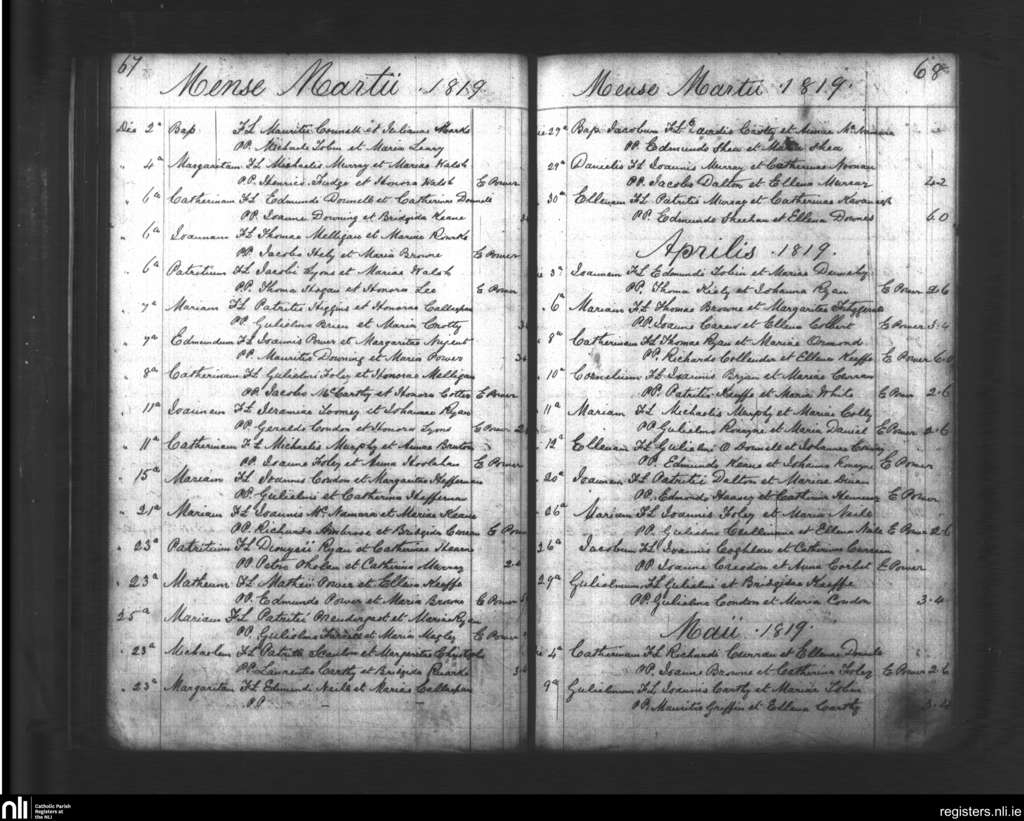 67
Mense Martii . 1819
Die 2ᵃ Bap F L Mauritii Connell et Juliana
PP. Michaele Tobin et Maria Leary
" 4ᵃ Margaritam F L Michaelis Murray et Mariae Walsh
PP. Henrico Fudge et Honora Walsh E Power
" 6ᵃ Catherinam F L Edmundi Donnell et Catherina Donnell
PP. Joanne Downing et Bridgida Keane
" 6ᵃ Joannem F L Thomae Melligan et Mariae Rourke
PP. Jacobo Hely et Maria Browne E Power
" 6ᵃ Patritium F L Jacobi Lyons et Mariae Walsh
PP. Thoma Hogan et Honora Lee E Power
" 7ᵃ Mariam F L Patritii Higgins et Honorae Callaghan
PP. Gulielmo Brien et Maria Crotty
" 7ᵃ Edmundum F L Joannis Power et Margaritae Nugent
PP. Mauritio Downing et Maria Power
" 8ᵃ Catherinam F L Gulielmi Foley et Honorae Melligan
PP. Jacobo McCarthy et Honora Cotter E Power
" 11ᵃ Joannem F L Jeremiae Toomey et Johannae Ryan
PP. Geraldo Condon et Honora Lyons E Power
" 11ᵃ Catherinam F L Michaelis Murphy et Annae Bruton
PP. Joanne Foley et Anna Hoolahan E Power
" 15ᵃ Mariam F L Joannis Condon et Margaritae Heffernan
PP. Gulielmo et Catherina Heffernan
" 21ᵃ Mariam F L Joannis McNamara et Mariae Keane
PP. Richardo Ambrose et Bridgida Curran E Power
" 23ᵃ Patritium F L Dionysii Ryan et Catherinae Hearn
PP. Petro Phelan et Catherina Murray
" 23ᵃ Matheum F L Mathei Power et Ellena Keeffe
PP. Edmundo Power et Maria Browne E Power
25ᵃ Mariam F L Patritii Prendergast et Maria Ryan
PP. Gulielmo et Maria Hegley E Power
" 23ᵃ Michaelem F L Patritii Scanlon et Margarita
PP. Laurentio Carthy et Bridgida
" 23ᵃ Margaritam F L Edmundi Neill et Mariae Callaghan
PP — —
68
Mense Martii . 1819.
29ᵃ Bap. Jacobum F L Carthy et Annae McNamara
PP. Edmundo Shea et Maria Shea
29ᵃ Danielis F L Joannis Murray et Catherinae Noonan
PP. Jacobo Dalton et Ellena Murray
30ᵃ Ellenam F L Patritii Murray et Catherinae Kavanagh
PP. Edmundo Sheehan et Ellena Downes 6.0
Aprilis . 1819.
3ᵃ Joannem F L Edmundi Tobin et Mariae
PP. Thoma Kiely et Johanna Ryan E Power 2.6
6ᵃ Mariam F L Thomae Browne et Margaritae Fitzgerald
PP. Joanne Carew et Ellena Colbert E Power 3.4
8ᵃ Catherinam F L Thomae Ryan et Mariae Ormond
PP. Richardo Collender et Ellena Keeffe E Power 6.0
10ᵃ Cornelium F L Joannis Bryan et Mariae Curran
PP. Patritio Keeffe et Maria White E Power 2.6
11ᵃ Mariam F L Michaelis Murphy et Mariae Colly
PP. Gulielmo Ronayne et Maria Daniel E Power 2.6
12ᵃ Ellenam F L Gulielmi O Donnell et Johannae
PP. Edmundo Keane et Johanna Ronayne E Power
20ᵃ Joannem F L Patritii Dalton et Mariae
PP. Edmundo Heasey et Catherina E Power
26ᵃ Mariam F L Joannis Foley et Maria Neill
PP. Gulielmo Cullinane et Ellena Neill E Power 2.6
26ᵃ Jacobum F L Joannis Coghlan et Catherina
PP. Joanne Creedon et Anna Corbet E Power
29ᵃ Gulielmum F L Gulielmi et Bridgidae Keeffe
PP. Gulielmo Condon et Maria Condon 3.4
Maii . 1819.
4ᵃ Catherinam F L Richardi Curran et Ellenae
PP. Joanne Browne et Catherina Foley E Power 2.6
9ᵃ Gulielmum F L Joannis Carthy et Mariae Tobin
PP. Mauritio Griffin et Ellena Carthy 3.4
nli
Catholic Parish
Registers at
the NLI
registers.nli.ie